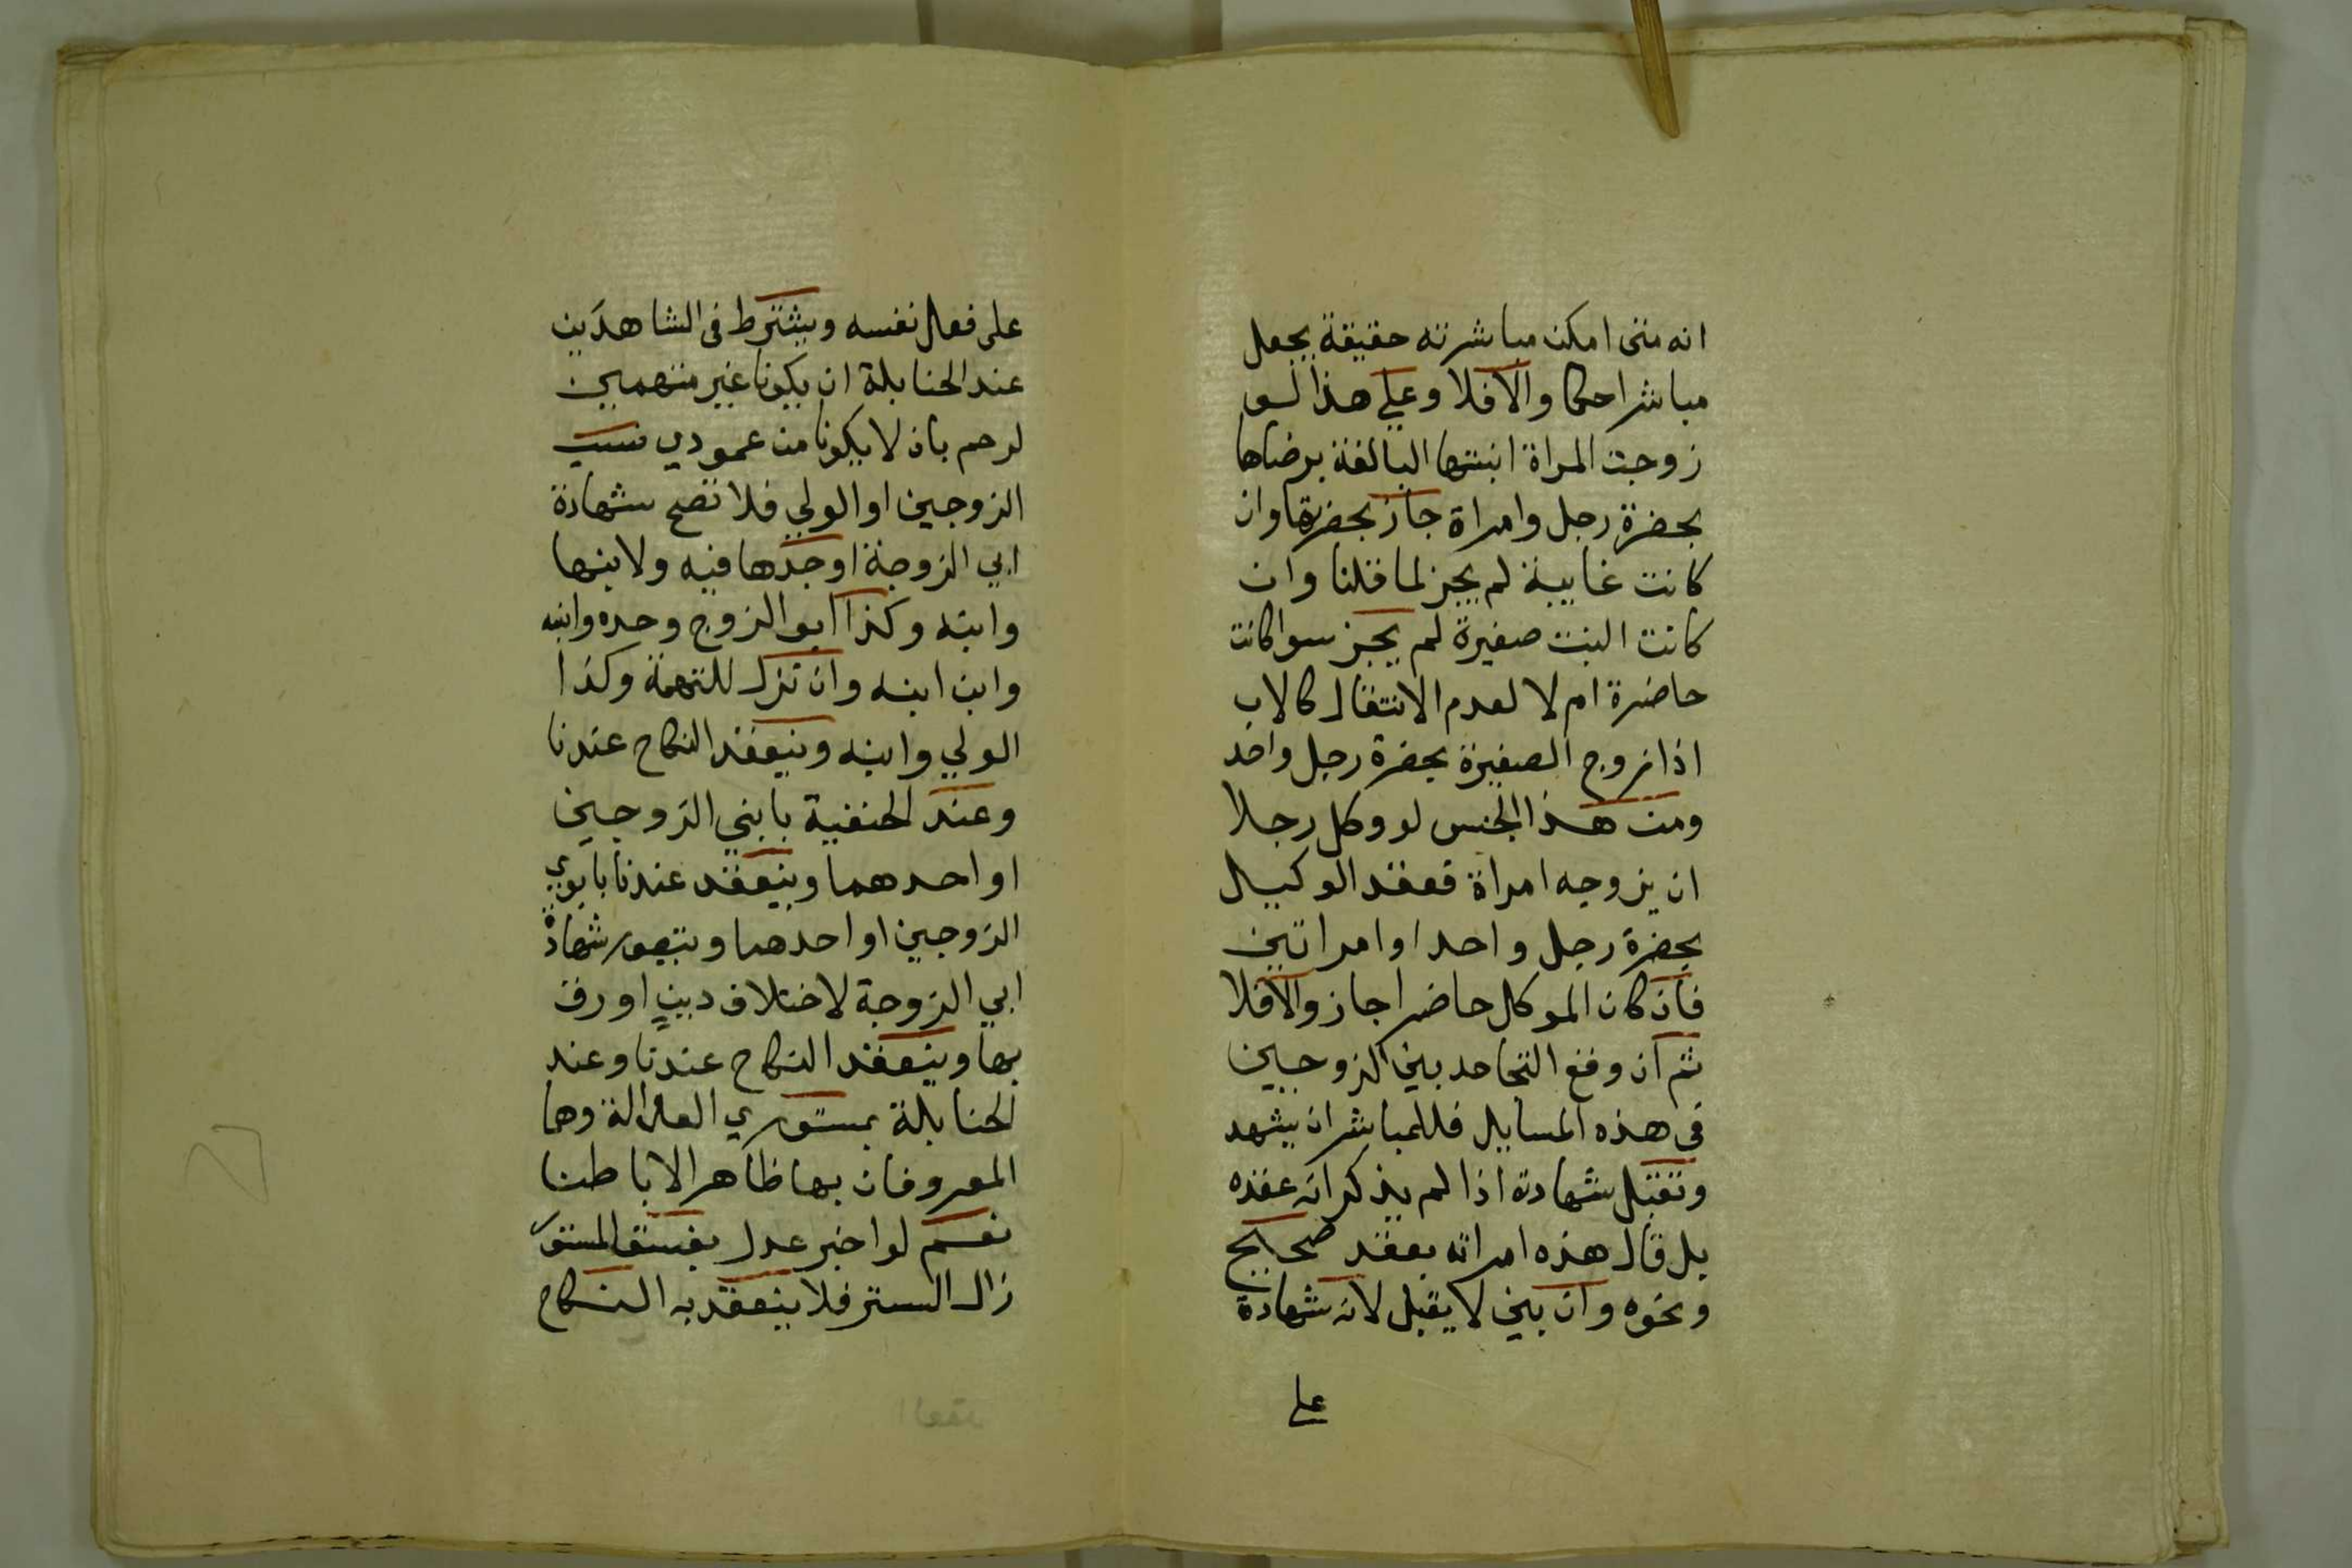 انه متى امكن مباشرته حقيقة يجعل
مباشرا حكما والا فلا وعلي هذا لو
زوجت المراة ابنتها البالغة برضاها
بحضرة رجل وامراة جاز بحضرتها وان
كانت غايبة لم يجز لما قلنا وان
كانت البنت صغيرة لم يجز سوا كانت
حاضرة ام لا لعدم الانتقال كالاب
اذا زوج الصغيرة بحضرة رجل واحد
ومن هذا الجنس لو وكل رجلا
ان يزوجه امراة فعقد الوكيل
بحضرة رجل واحد او امراتين
فان كان الموكل حاضرا جاز والا فلا
ثم ان وقع التجاحد بين الزوجين
في هذه المسايل فللمباشر ان يشهد
وتقبل شهادته اذا لم يذكر انه عقده
بل قال هذه امراته بعقد صحيح
ونحوه وان بين لا يقبل لانه شهادة
على
على فعل نفسه ويشترط في الشاهدين
عند الحنابلة ان يكونا غير متهمين
لرحم بان لا يكونا من عمودي نسب
الزوجين او الولي فلا تصح شهادة
ابي الزوجة او جدها فيه ولا بنها
وابنه وكذا ابو الزوج وجده وابنه
وابن ابنه وان نزل للتهمة وكذا
الولي وابنه وينعقد النكاح عندنا
وعند الحنفية بابني الزوجين
او احدهما وينعقد عندنا بابوي
الزوجين او احدهما ويتصور شهادة
ابي الزوجة لاختلاف دين او رق
بها وينعقد النكاح عندنا وعند
الحنابلة بمستوري العدالة وهما
المعروفان بها ظاهرا لا باطنا
نعم لو اخبر عدل بفسق المستور
زال الستر فلا ينعقد به النكاح